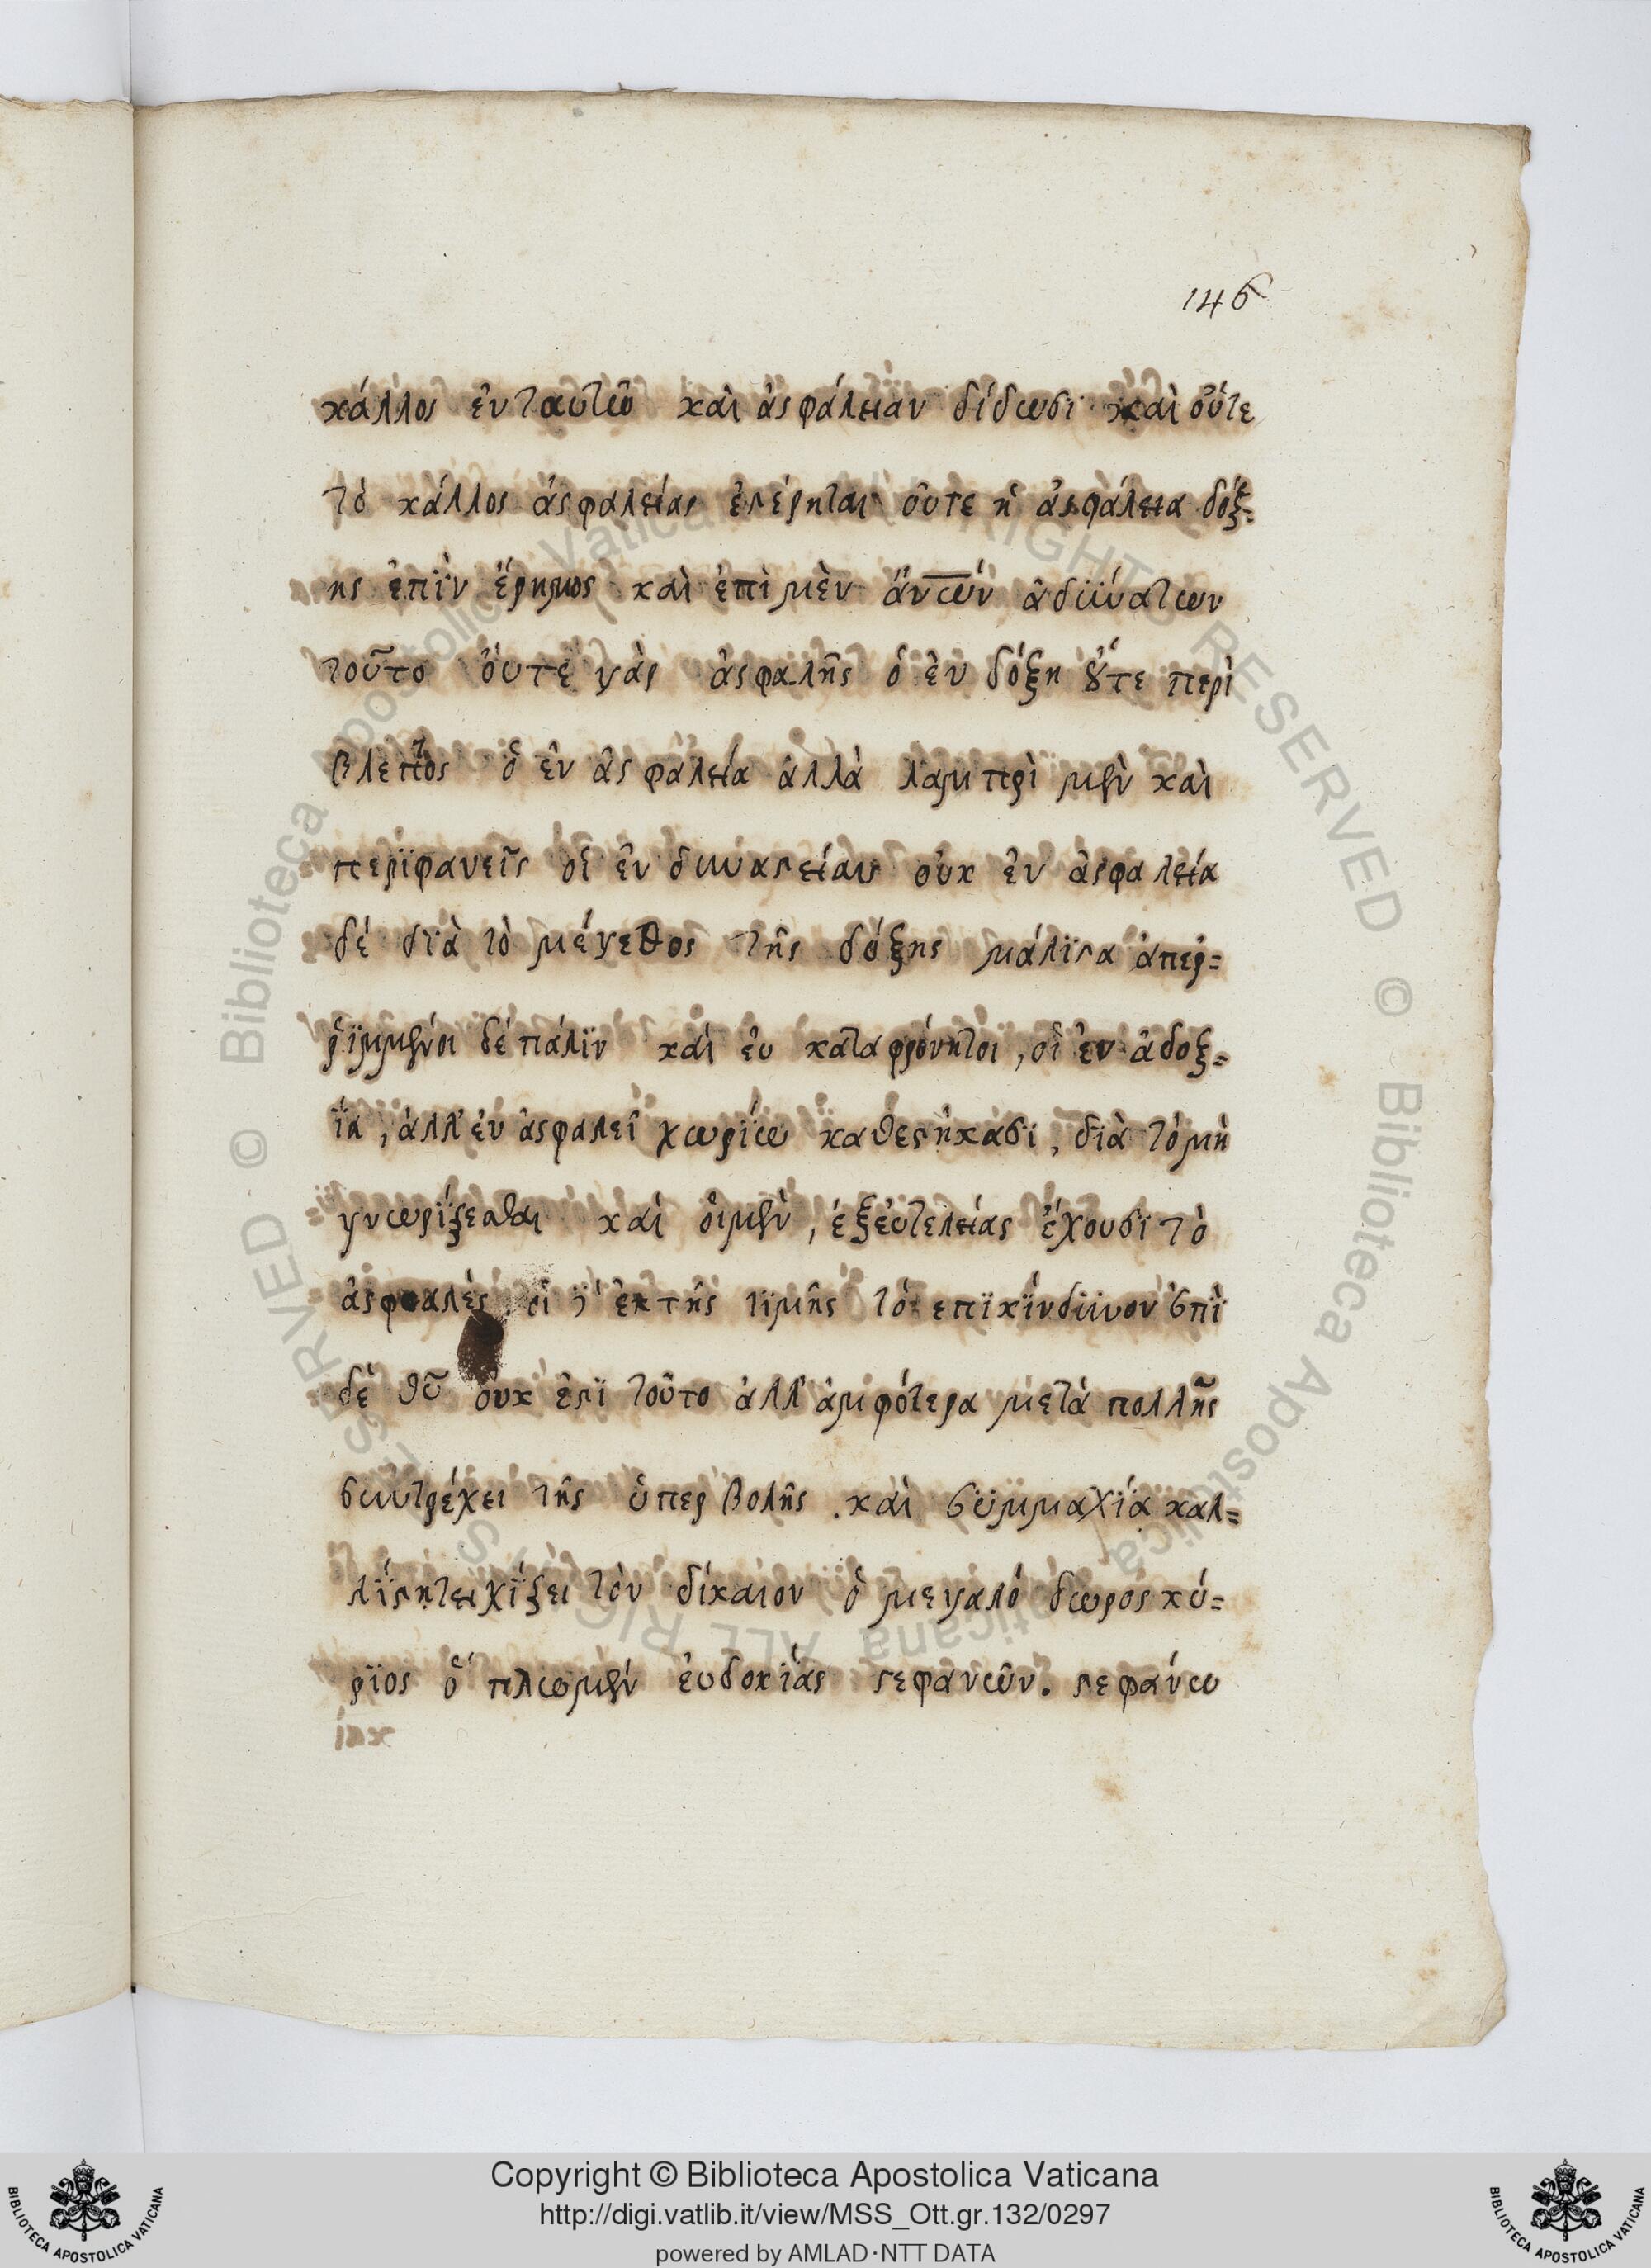 146
κάλλος ἐν ταυτῶ καὶ ἀσφάλειαν δίδωσϊ καὶ οὔτε
τὸ κάλλος ἀσφαλείας ἐϛέρηται οὔτε ἡ ἀσφάλεια δόξ=
ης ἐπϊν ἔρημος καὶ ἐπὶ μὲν ἀν̅ων ἀδϋνάτων
τοῦτο οὔτε γὰρ ἀσφαλὴς ὁ ἐν δόξη ȣ̓τε περὶ
βλεπτος ὁ ἐν ἀσφαλεία ἀλλὰ λαμπρὶ μὲν καὶ
περϊφανεῖς οἱ ἐν δυναϛείαις οὐκ ἐν ἀσφαλεία
δέ δϊὰ τὸ μέγεθος τῆς δόξης μάλϊϛα ἀπερ=
ρϊμμένοι δέ πάλϊν καὶ ἐυ καταφρόνητοι, οἱ ἐν ἀδοξ=
ΐα, ἀλλ' ἐν ἀσφαλεῖ χωρΐω καθεϛήκασϊ, δϊὰ τόμὴ
γνωρΐζεσθαι καὶ οἱμὲν, ἐξ ἐυτελείας ἔχουσϊ τὸ
ἀσφαλὲς οἱ ἐκ τῆς τϊμῆς τὸ επϊκΐνδϋνον ἐπὶ
δὲ θῦ οὐκ ἐϛϊ τοῦτο ἀλλ' ἀμφότερα μετὰ πολλῆς
συντρέχει τῆς ὑπερβολῆς . καὶ σϋμμαχΐα καλ=
λΐϛη τειχΐζει τὸν δίκαιον ὁ μεγαλό δωρος κύ=
ρϊος ὁ πλωμὲν ἐυδοκίας ϛεφανῶν. ϛεφάνω